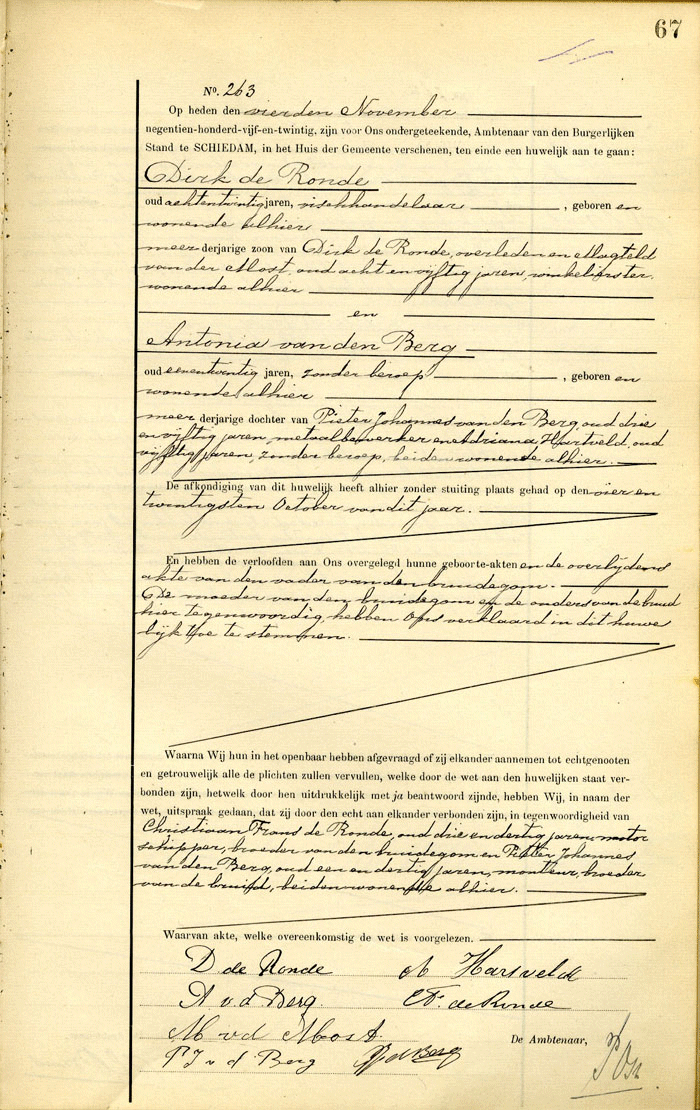 67
No. 263
Op heden den vierden November
negentien-honderd-vijf-en-twintig, zijn voor Ons ondergeteekende, Ambtenaar van den Burgerlijken
Stand te SCHIEDAM, in het Huis der Gemeente verschenen, ten einde een huwelijk aan te gaan:
Dirk de Ronde
oud achtentwintig jaren, vischhandelaar, geboren en
wonende alhier
meerderjarige zoon van Dirk de Ronde, overleden en Magteld
van der Most, oud acht en vijftig jaren, winkelierster,
wonende alhier
en
Antonia van den Berg
oud eenentwintig jaren, zonder beroep, geboren en
wonende alhier
meerderjarige dochter van Pieter Johannes van den Berg, oud drie
en vijftig jaren, metaalbewerker en Adriana Hartveld, oud
vijftig jaren, zonder beroep, beiden wonende alhier.
De afkondiging van dit huwelijk heeft alhier zonder stuiting plaats gehad op den vier en
twintigsten October van dit jaar.
En hebben de verloofden aan Ons overgelegd hunne geboorte-akten en de overlijdens
akte van den vader van den bruidegom.
De moeder van den bruidegom en de ouders van de bruid
hier tegenwoordig, hebben Ons verklaard in dit huwe
lijk toe te stemmen.
Waarna Wij hun in het openbaar hebben afgevraagd of zij elkander aannemen tot echtgenooten
en getrouwelijk alle de plichten zullen vervullen, welke door de wet aan den huwelijken staat ver-
bonden zijn, hetwelk door hen uitdrukkelijk met ja beantwoord zijnde, hebben Wij, in naam der
wet, uitspraak gedaan, dat zij door den echt aan elkander verbonden zijn, in tegenwoordigheid van
Christiaan Frans de Ronde, oud drie en dertig jaren, motor
schipper, broeder van den bruidegom en Pieter Johannes
van den Berg, oud een en dertig jaren, monteur, broeder
van de bruid, beiden wonende alhier.
Waarvan akte, welke overeenkomstig de wet is voorgelezen.
D. de Ronde A Hartveld
A v.d. Berg. CF. de Ronde
M vd Most.
De Ambtenaar,
P J v d Berg PJvdBerg